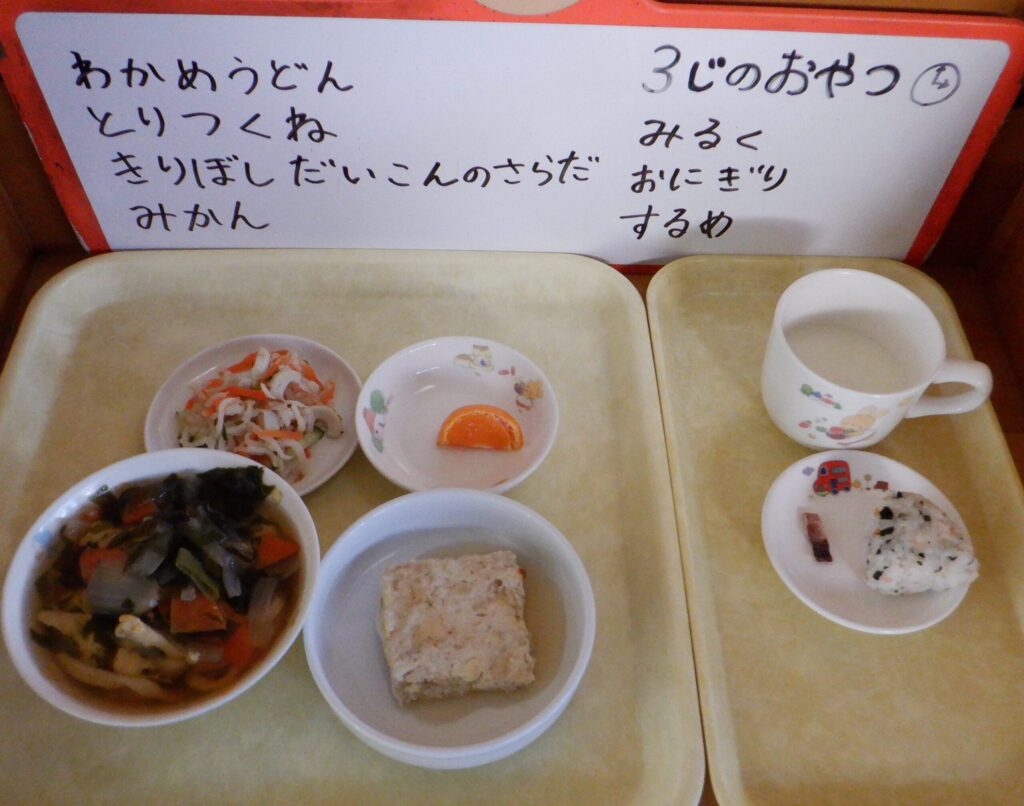 わかめうどん
とりつくね
きりぼしだいこんのさらだ
みかん
3じのおやつ
みるく
おにぎり
するめ